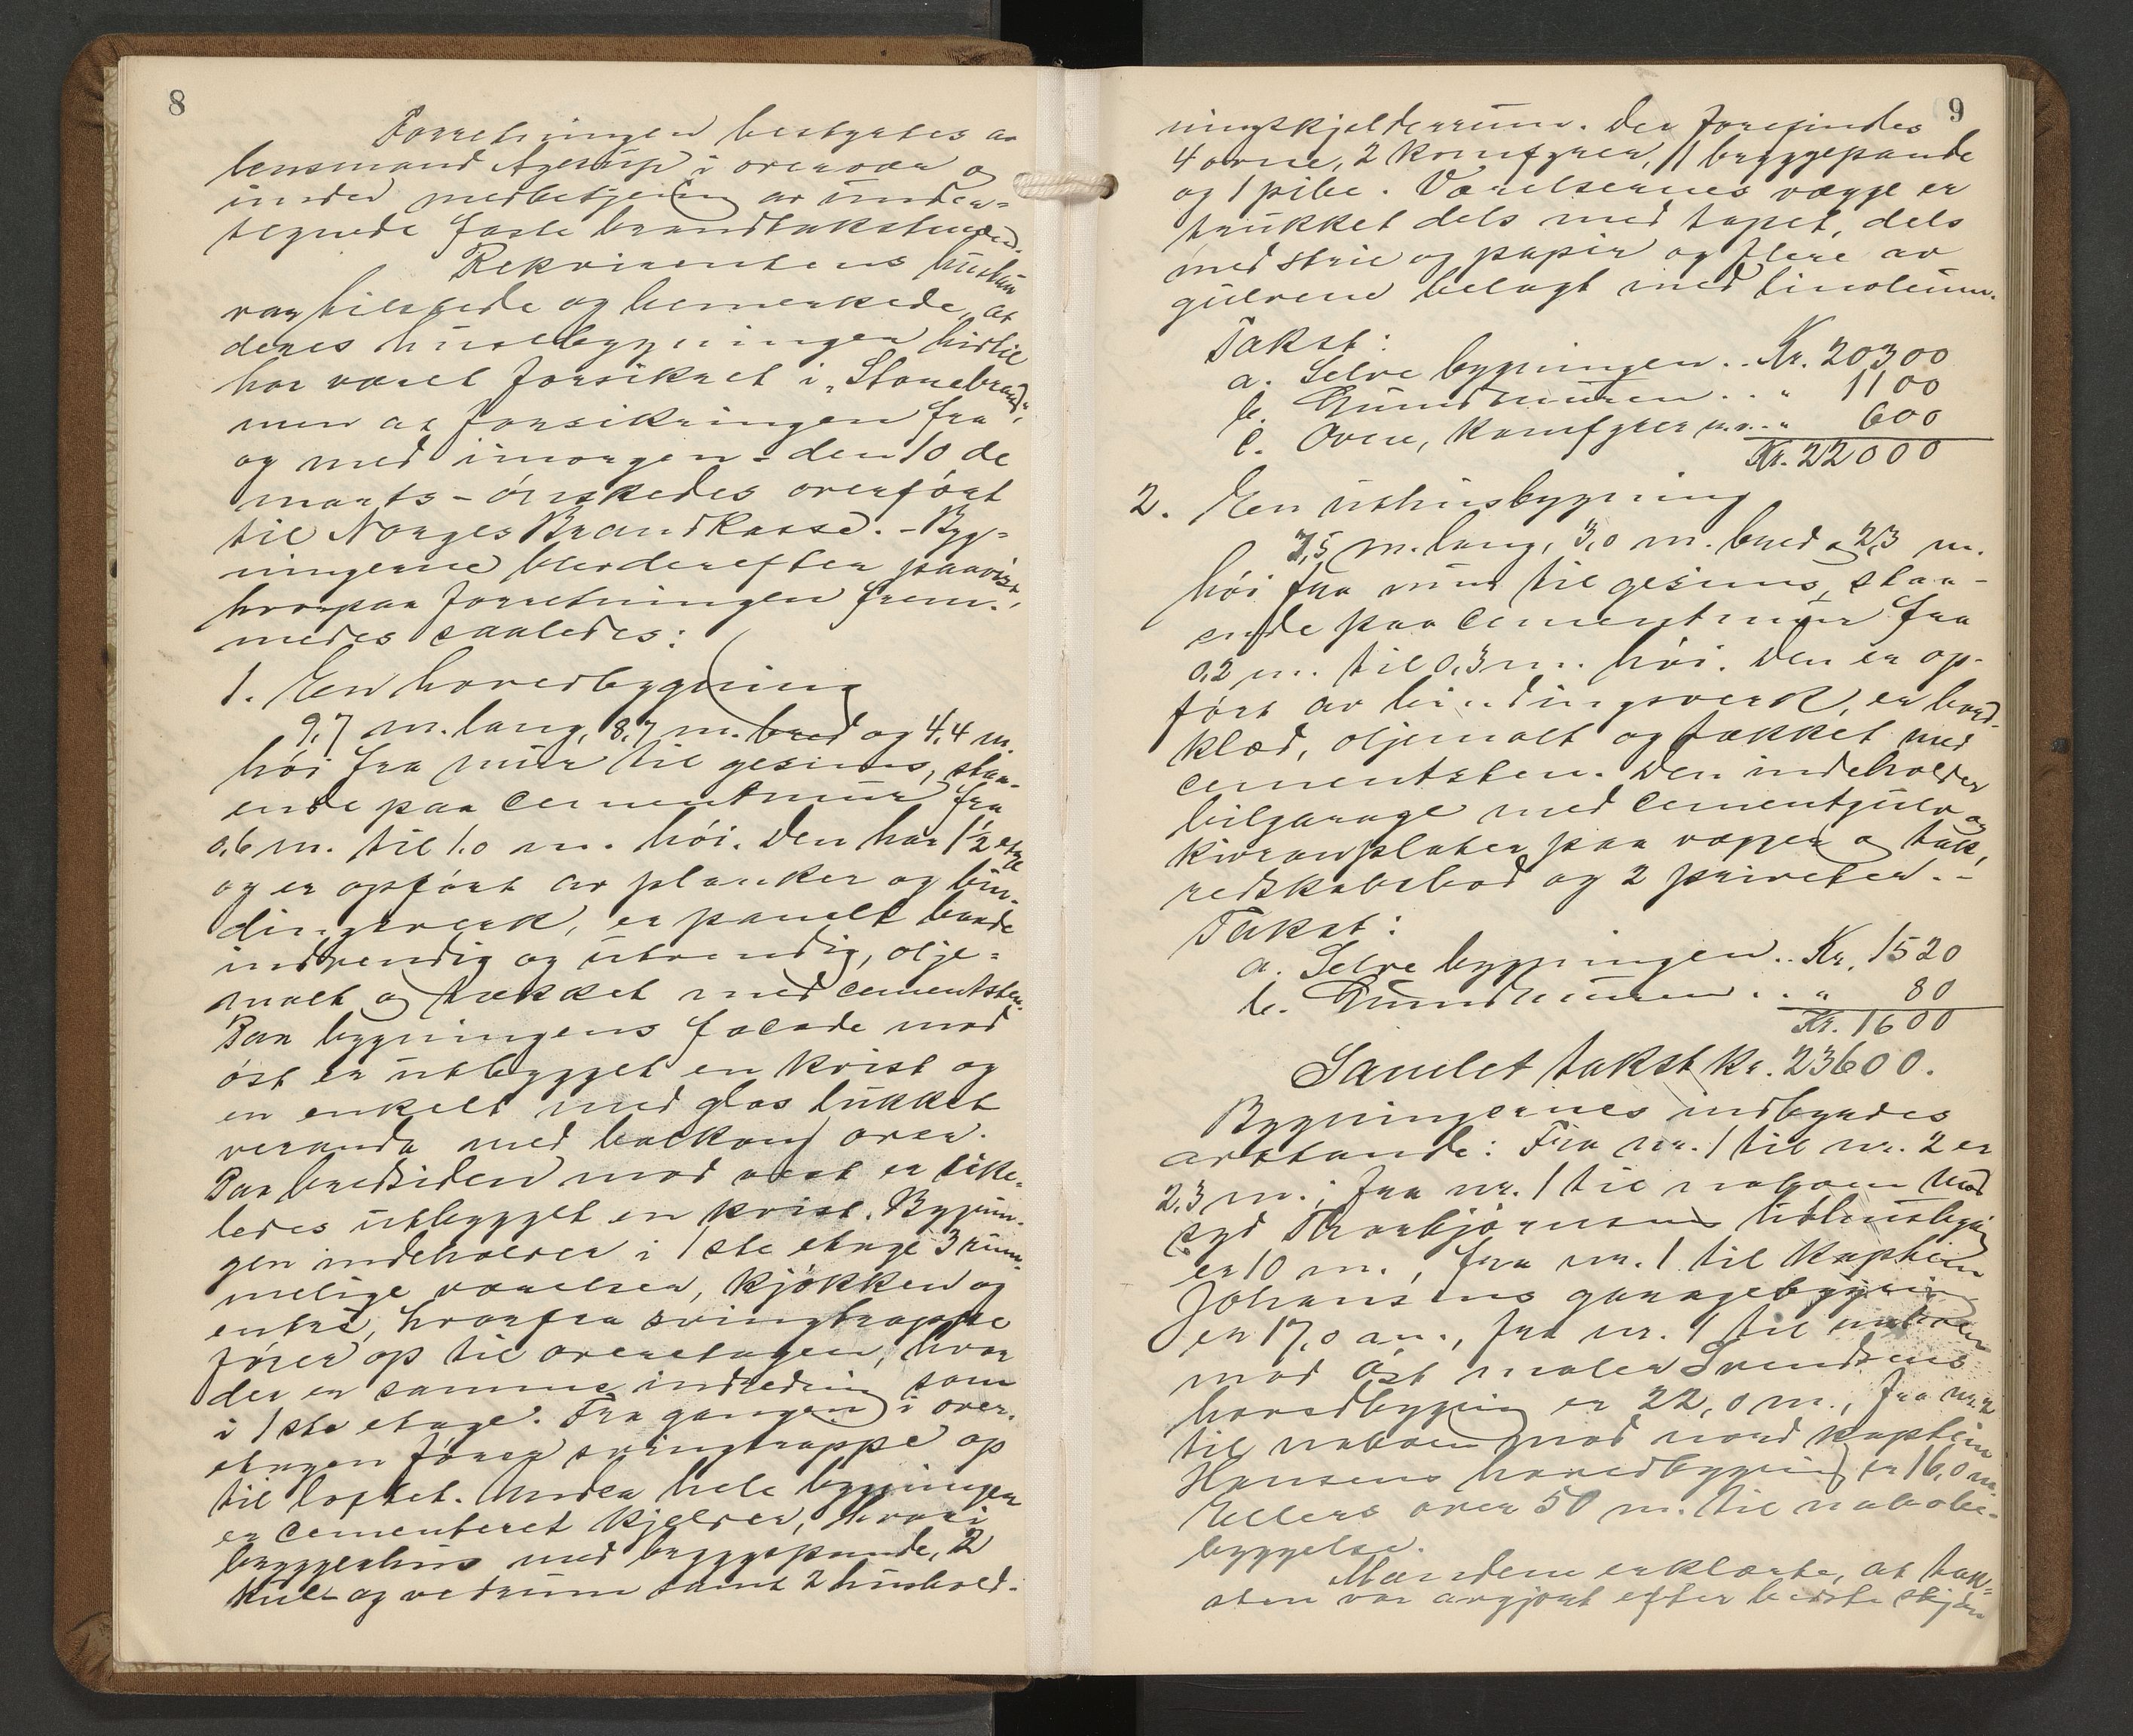 8
Forretningen bestyrtes av
lensmand Agerup i overvær og
under medbetjening av under-
tegnede faste brandtakstmænd.
Rekvirentens hustru
var tilstede og bemerkede, at
deres husebygningen hidtil
har været forsikret i „Storebrand",
men at forsikringen fra
og med imorgen - den 10 de
marts - ønskedes overført
til Norges Brandkasse. - Byg-
ningerne blev derefter paavist,
hvorpaa forretningen frem-
medes saaledes:
1. En hovedbygning
9,7 m. lang, 8,7 m. bred og 4,4 m.
høi fra mur til gesims, staa-
ende paa cementmur fra
0,6 m. til 1,0 m. høi. Den har 1½ etage
og er opført av planker og bin-
dingsverk, er panelt baade
indvendig og utvendig, olje-
malt og tækket med cementsten.
Paa bygningens facade mod
øst er utbygget en kvist og
en enkelt med glas lukket
veranda med balkong over.
Paa bredsiden mod vest er like-
ledes utbygget en kvist. Bygnin-
gen indeholder i 1ste etage 3 rum-
melige værelser, kjøkken og
entré, hvorfra svingtrappe
fører op til overetagen, hvor
der er samme indredning som
i 1ste etage. Fra gangen i over-
etagen fører svingtrappe op
til loftet. Under hele bygningen
er cementeret kjelder, hvori
bryggerhus med bryggepande, 2
kul- og vedrum samt 2 hushold-
9
ningskjelderrum. Der forefindes
4 ovne, 2 komfyrer, 1 bryggepande
og 1 pibe. Værelsernes vægge er
trukket dels med tapet, dels
med strie og papir og flere av
gulvene belagt med linoleum.
Takst:
a. Selve bygningen .. Kr. 20300
b. Grundmuren .. „ 1100
c. Ovne, komfyrer m.v. .. „ 600
Kr. 22000
2. En uthusbygning
7,5 m. lang, 3,0 m. bred og 2,3 m.
høi fra mur til gesims, staa-
ende paa cementmur fra
0,2 m. til 0,3 m. høi. Den er op-
ført av bindingsverk, er bord-
klæd, oljemalt og tækket med
cementsten. Den indeholder
bilgarage med cementgulv og
plater paa vægger og tak,
redskabsbod og 2 priveter. -
Takst:
a. Selve bygningen .. Kr. 1520
b. Grundmuren .. „ 80
Kr. 1600
Samlet takst kr. 23600.
Bygningernes indbyrdes
avstande: Fra nr. 1 til nr. 2 er
2,3 m.; fra nr. 1 til naboen mod
syd Thorbjørnsens uthusbygning
er 10 m., fra nr. 1 til kaptein
Johansens garagebygning
er 17,0 m., fra nr. 1 til naboen
mod øst maler Svendsens
hovedbygning er 22,0 m., fra nr. 2
til naboen mod nord kaptein
Hansens hovedbygning er 16,0 m.
Ellers over 50 m. til nabobe-
byggelse.
Mændene erklærte, at tak-
sten var avgjort efter bedste skjøn